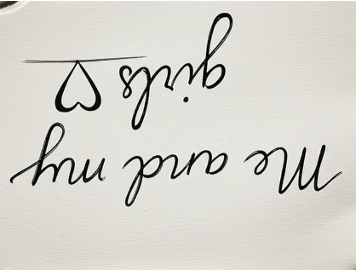 Me and my
girls ♡